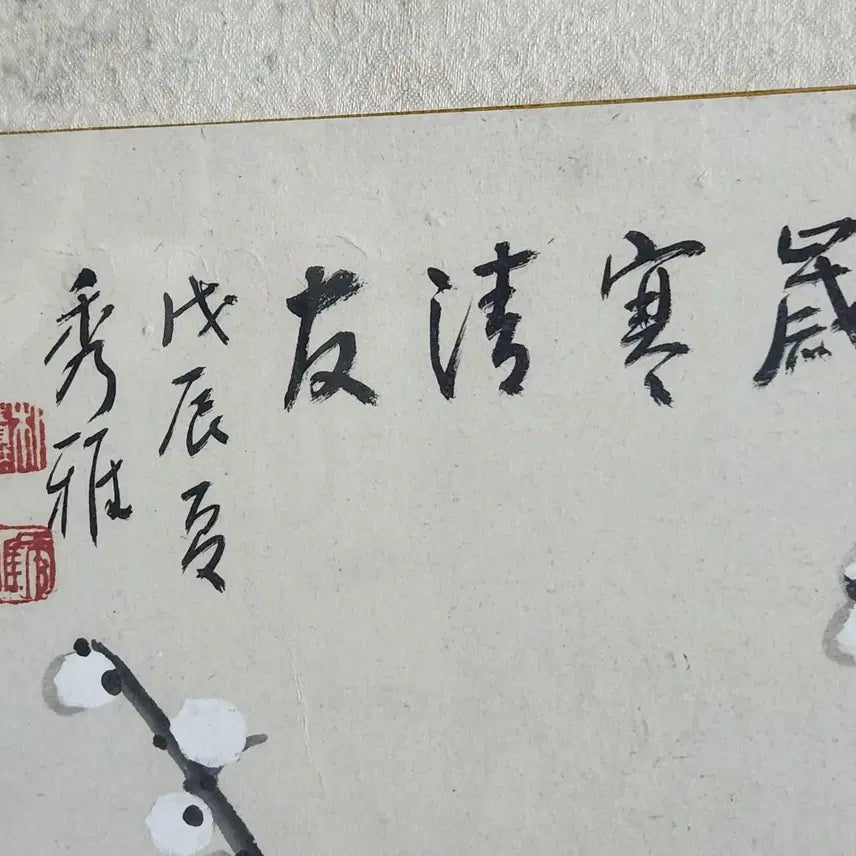 歲寒清友
戊辰夏
秀雅